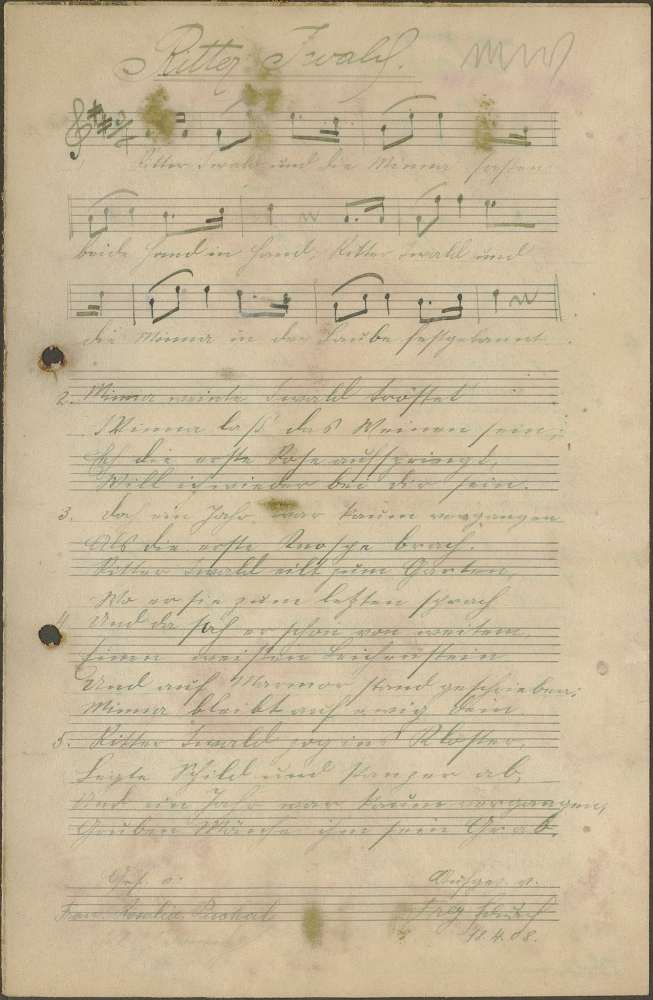 Ritter Ewald.
Ritter Ewald und die Minna saßen
beide Hand in Hand, Ritter Ewald und
die Minna in der Laube festgebannt.
2. Minna weinte Ewald tröstet
Minna laß das Weinen sein;
Eh die erste Rose aufspringt,
Will ich wieder bei dir sein.
3. Doch ein Jahr war kaum vergangen
Als die erste Knospe brach.
Ritter Ewald eilt zum Garten,
Wo er sie zum letzten sprach
4. Und da sah er schon von weitem
Einen weißen Leichenstein
Und auf Marmor stand geschrieben:
Minna bleibt auf ewig dein.
5. Ritter Ewald zog ins Kloster,
Legte Schild und Panzer ab,
Und ein Jahr war kaum vergangen,
Gruben Mönche ihm sein Grab.
Ges. v. Aufgez. v.
Frau
11.4.08.